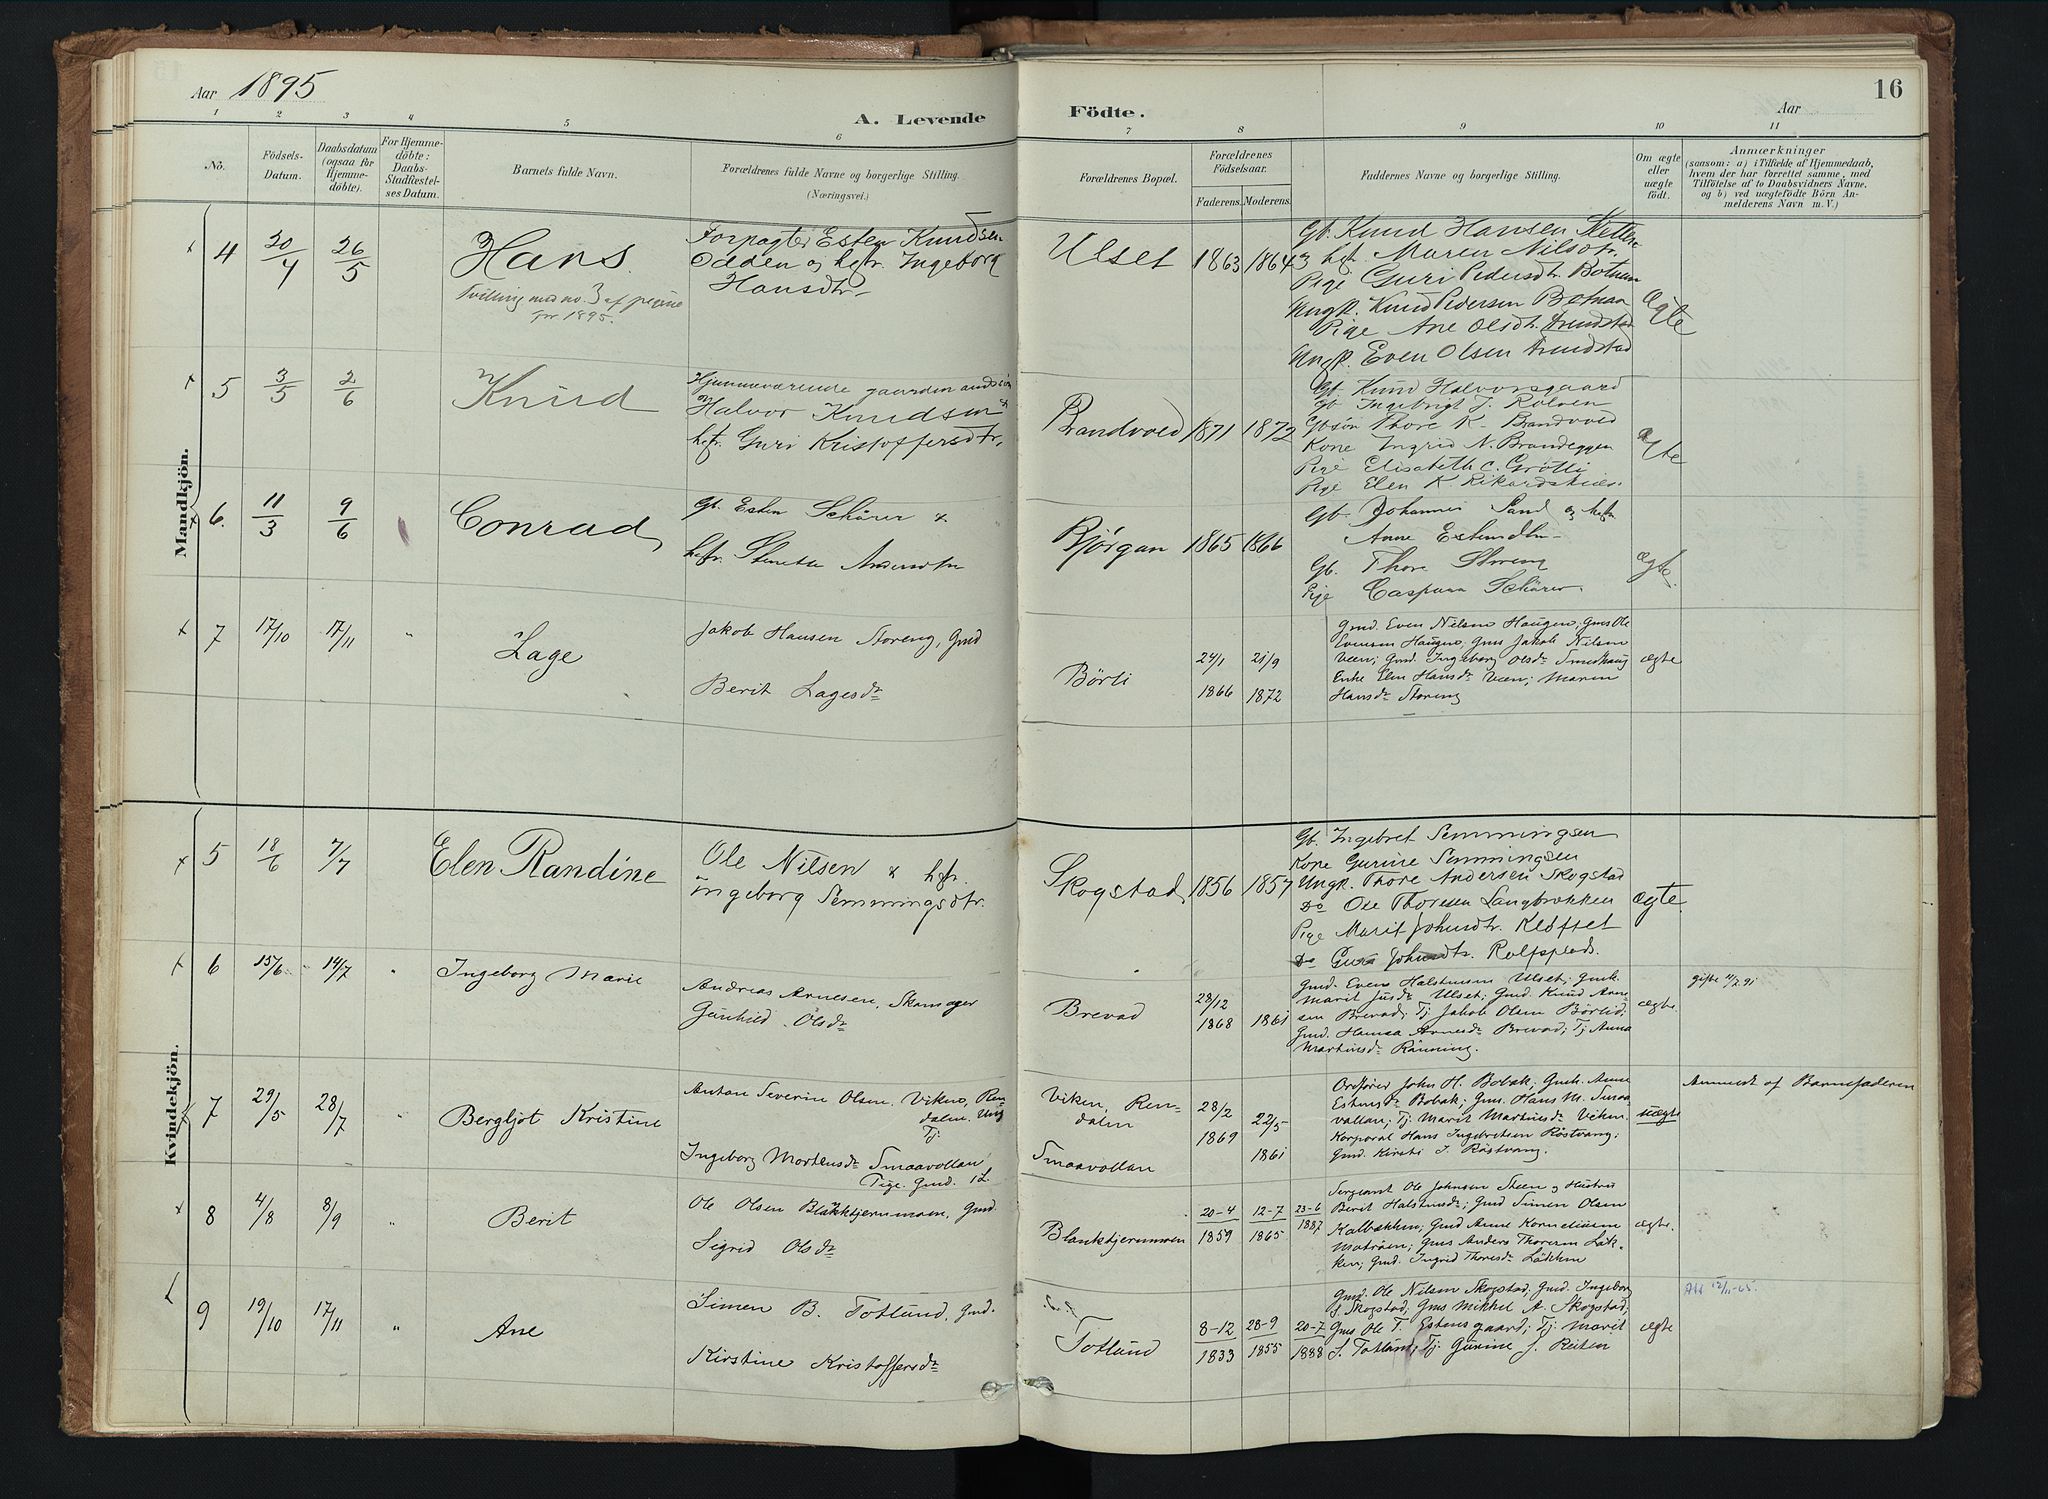 Aar 1895
A. Levende
Födte.
16
Aar
1 2 3 4 5 6 7 8 9 10 11
No.
Födsels-
Datum.
Daabsdatum
(ogsaa for
Hjemme-
döbte).
For Hjemme-
döbte:
Daabs-
Stadfæstel-
ses Datum.
Barnets fulde Navn.
Forældrenes fulde Navne og borgerlige Stilling.
(Næringsvei.)
Forældrenes Bopæl.
Forældrenes
Födselsaar.
Faderens. Moderens.
Faddernes Navne og borgerlige Stilling.
Om ægte
eller
uægte
födt.
Anmærkninger
(saasom: a) i Tilfælde af Hjemmedaab,
hvem der har forrettet samme, med
Tilföielse af to Daabsvidners Navne,
og b) ved uægtefödte Börn An-
melderens Navn m. V.)
Mandkjön.
4 20/4 26/5
Hans.
Tvilling med no. 3 af pigerne
for 1895.
Forpagter Esten Knudsen
Odden og hstr. Ingeborg
Hansdtr.
Ulset 1863 1864
Gb. Knud Hansen
hst. Maren Nilsdtr.
Pige Guri Pedersdtr. Botnan
Ungk. Knud Pedersen Botnan
Pige Ane Olsdtr. Trondstad
Ungk. Even Olsen Trondstad
Ægte
5 3/5 2/6
Knud
Hjemmeværende gaardmandssøn
Halvor Knudsen &
hst. Guri Kristoffersdtr.
Brandvold 1871 1872
Gb. Knud Halvorsgaard
Gb Ingebrigt J. Rolven
Gbsön Thore K. Brandvold
Kone Ingrid N. Brandeggen
Pige Elisabeth C. Grötli
Pige Elen K.
ægte
6. 11/3 9/6
Conrad
Gb. Esten Schärer &
hstr. Stinette Andersdtr
Bjørgan 1865 1866
Gb. Johannes Sand og hstr
Anne Estensdtr
Gb. Thore Streng
Pige Caspara Schärer
ægte.
7 17/10 17/11 "
Lage
Jakob Hansen Storeng, Gmd
Berit Lagesdr
Börli
24/1
1866
21/9
1872
Gmd. Even Nilsen Haugen; Gms Ole
Evensen Haugen, Gms Jakob Nilsen
Veen; Gmd. Ingeborg Olsdr Smedhaug
Enke Elen Hansdr Veen; Maren
Hansdr Storeng
ægte
Kvindekjön.
5 18/6 7/7
Elen Randine
Ole Nilsen & hstr.
Ingeborg Semmingsdtr.
Skogstad 1856 1857
Gb. Ingebret Semmingsen
Kone Gurine Semmingsen
Ungk. Thore Andersen Skogstad
Do Ole Thoresen Langbrækken
Pige Marit Johnsdtr. Kløftet
Do Guri Johnsdtr. Rolfsplads.
ægte.
6 15/6 14/7 "
Ingeborg Marie
Andreas Arnesen, Skomager
Gunhild Olsdr
Brevad
28/12
1868
1861
Gmd. Even Halstensen Ulset; Gmk.
Marit Jusdr Ulset; Gmd. Knud Arne-
sen Brevad; Tj Jakob Olsen Börlid,
Gmd. Hansa Arnesdr Brevad; Tj Anna
Martinsdr Rönning.
ægte.
gifte 11/7 91
7 29/5 28/7 "
Bergljot Kristine
Anton Severin Olsen, Viken, Ren-
dalen. Ung
Tj.
Ingeborg Mortensdr Smaavollan
Pige. Gmd. 1 L.
Viken, Ren-
dalen
Smaavollan
28/2
1869
22/5
1861
Ordförer John H. Bobak; Gmk. Anne
Estensdr Bobak; Gms. Hans M. Smaa-
vollan; Tj Marit Martinsdr Viken.
Korporal Hans Ingebretsen Röstvang;
Gmd. Kirsti I. Röstvang.
uægte
Anmeldt af Barnefaderen
8 4/8 8/9 "
Berit
Ole Olsen Blakktjernmoen, Gmd.
Sigrid Olsdr
Blanktjernmoen
20-4
1859
12-7
1865
23-6
1887
Sergeant Ole Johnsen Steen og Hustru
Berit Halstensdr; Gmd Simen Olsen
Kalbækken; Gmd Anne Korneliusen
Motröen; Gms Anders Thoresen Läk-
ken; Gmd. Ingrid Thoresdr Läkken
ægte.
9 19/10 17/11 "
Ane
Simen B. Totlund, Gmd.
Kirstine Kristoffersdr
Totlund
8-12
1833
28-9
1855
20-7
1888
Gmd. Ole Nilsen Skogstad, Gmd. Ingeborg
S. Skogstad; Gms Mikkel A. Skogstad;
Gms Ole T. Estensgaard; Tj. Marit
S. Totlund; Tj. Gurine J. Reiten
ægte
Att 12/11-65.